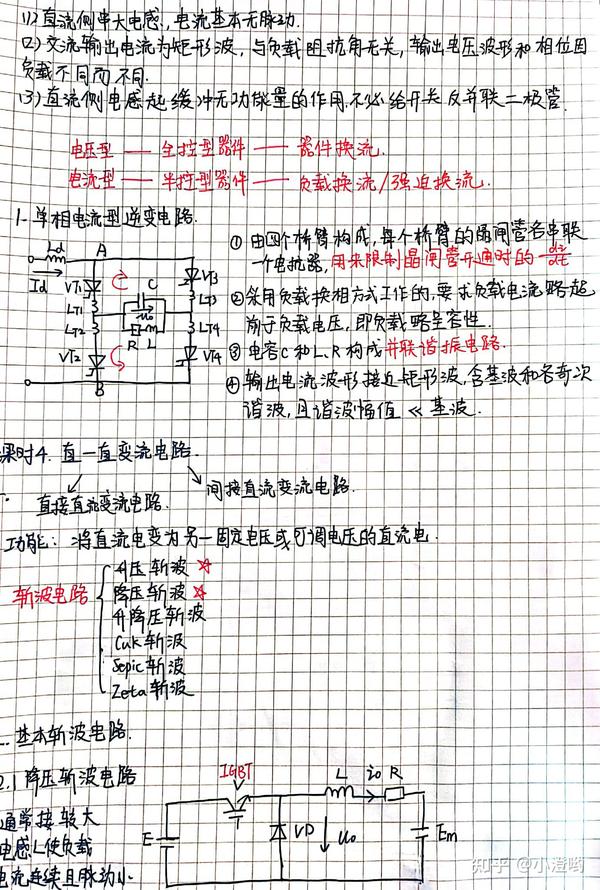 (1) 直流侧串大电感,电流基本无脉动.
(2) 交流输出电流为矩形波,与负载阻抗角无关,输出电压波形和相位因
负载不同而不同.
(3) 直流侧电感起缓冲无功能量的作用.不必给开关反并联二极管.
电压型 —— 全控型器件 —— 器件换流.
电流型 —— 半控型器件 —— 负载换流/强迫换流.
1. 单相电流型逆变电路.
Ld
A
Id
VT1
C
VT3
LT1
LT3
LT2
R
L
LT4
VT2
VT4
B
① 由四个桥臂构成,每个桥臂的晶闸管各串联
一个电抗器,用来限制晶闸管开通时的 di/dt
② 采用负载换相方式工作的,要求负载电流略超
前于负载电压,即负载略呈容性.
③ 电容C和L、R构成并联谐振电路.
④ 输出电流波形接近矩形波,含基波和各奇次
谐波,且谐波幅值 << 基波.
课时4. 直—直变流电路.
直接直流变流电路.
间接直流变流电路.
功能: 将直流电变为另一固定电压或可调电压的直流电.
斩波电路
升压斩波 ☆
降压斩波 ☆
升降压斩波
Cuk 斩波
Sepic 斩波
Zeta 斩波
基本斩波电路.
2.1 降压斩波电路
IGBT
L
io
R
E
VD
uo
Em
通常接较大
电感L使负载
电流连续且脉动小
知乎 @小澄哟